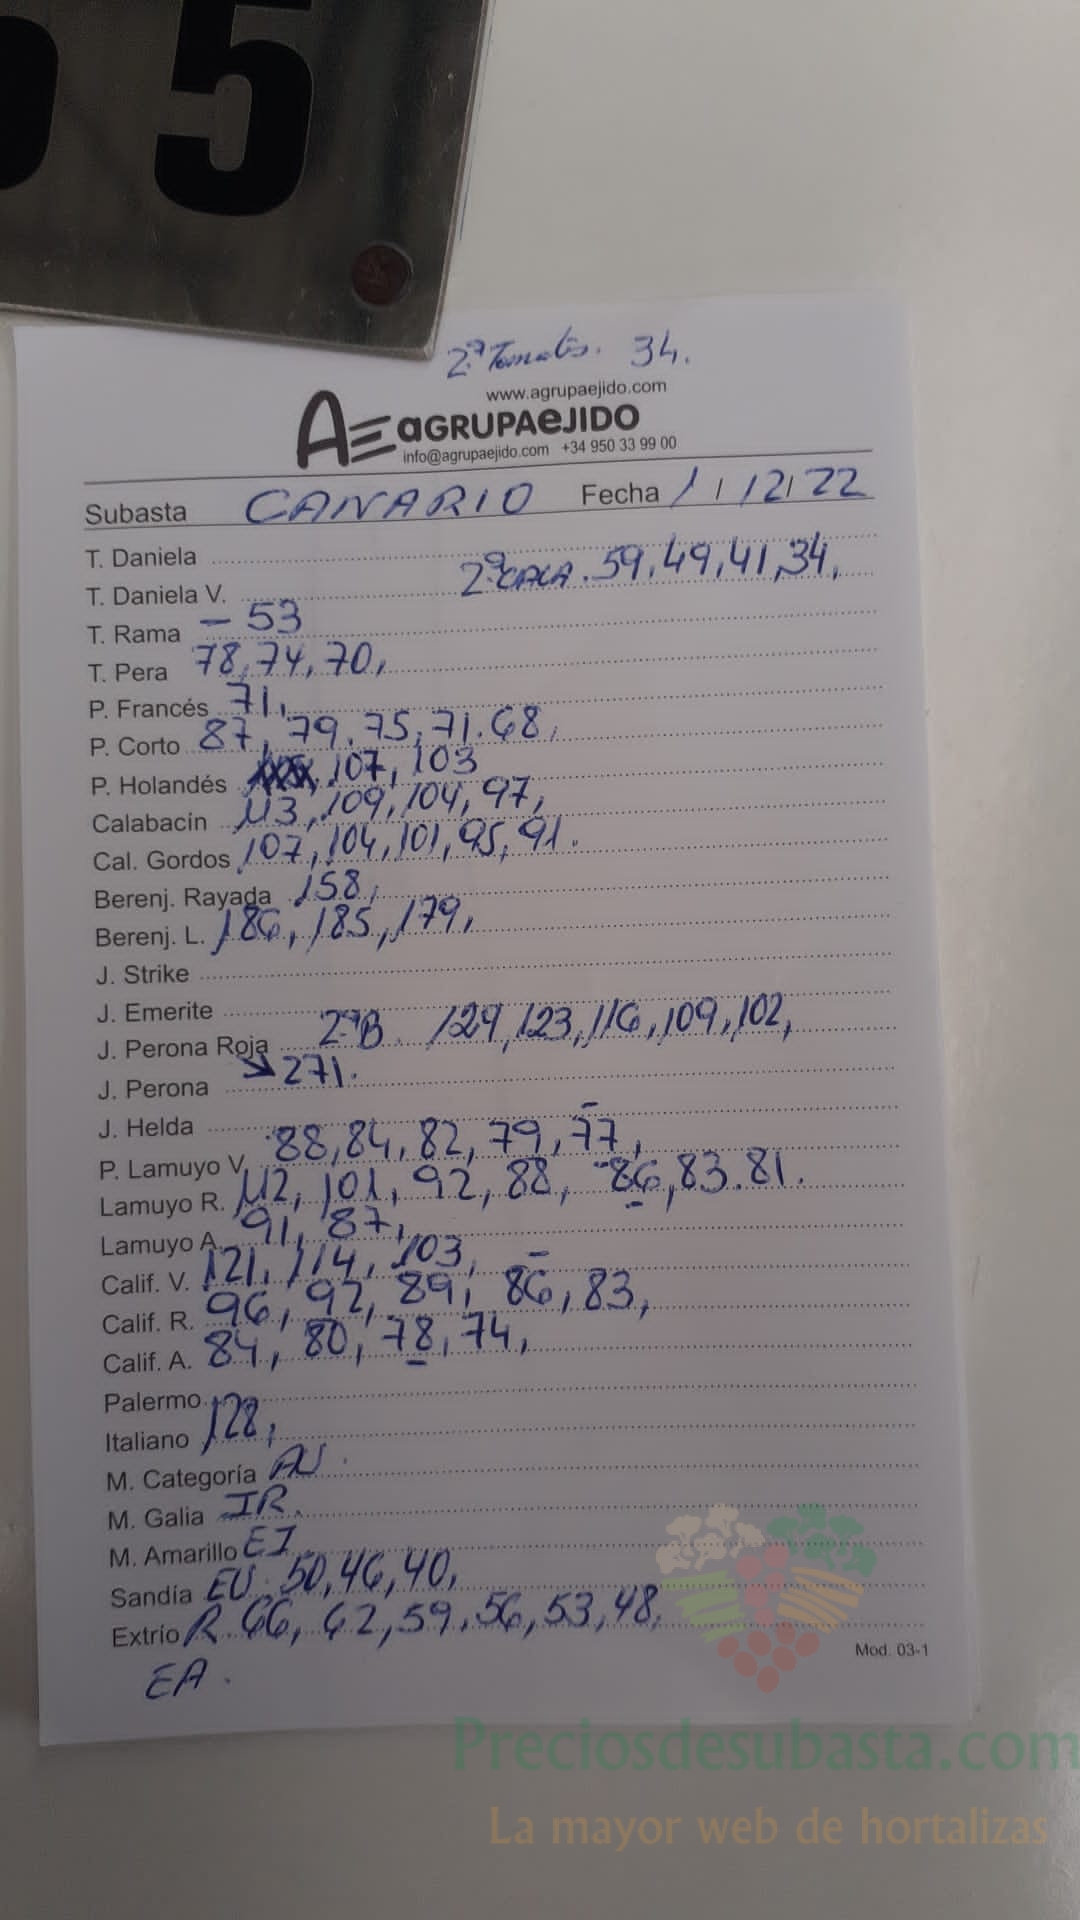 5
2ª Tomates. 34.
www.agrupaejido.com
AE aGRUPAeJIDO
info@agrupaejido.com +34 950 33 99 00
Subasta CANARIO Fecha 1 / 12 / 22
T. Daniela
T. Daniela V. 2ª CALA. 59, 49, 41, 34,
T. Rama - 53
T. Pera 78, 74, 70,
P. Francés 71,
P. Corto 87, 79. 75, 71. 68,
P. Holandés 107, 103
Calabacín 113, 109, 104, 97,
Cal. Gordos 107, 104, 101, 95, 91.
Berenj. Rayada 158,
Berenj. L. 186, 185, 179,
J. Strike
J. Emerite
J. Perona Roja 2ª B. 129, 123, 116, 109, 102,
J. Perona 271.
J. Helda
P. Lamuyo V. 88, 84, 82, 79, 77,
Lamuyo R. 112, 101, 92, 88, 86, 83. 81.
Lamuyo A. 91, 87,
Calif. V. 121, 114, 103,
Calif. R. 96, 92, 89, 86, 83,
Calif. A. 84, 80, 78, 74,
Palermo
Italiano 128,
M. Categoría AU.
M. Galia IR.
M. Amarillo EI
Sandía EU. 50, 46, 40,
Extrío R. 66, 62, 59, 56, 53, 48,
Mod. 03-1
EA.
Preciosdesubasta.com
La mayor web de hortalizas